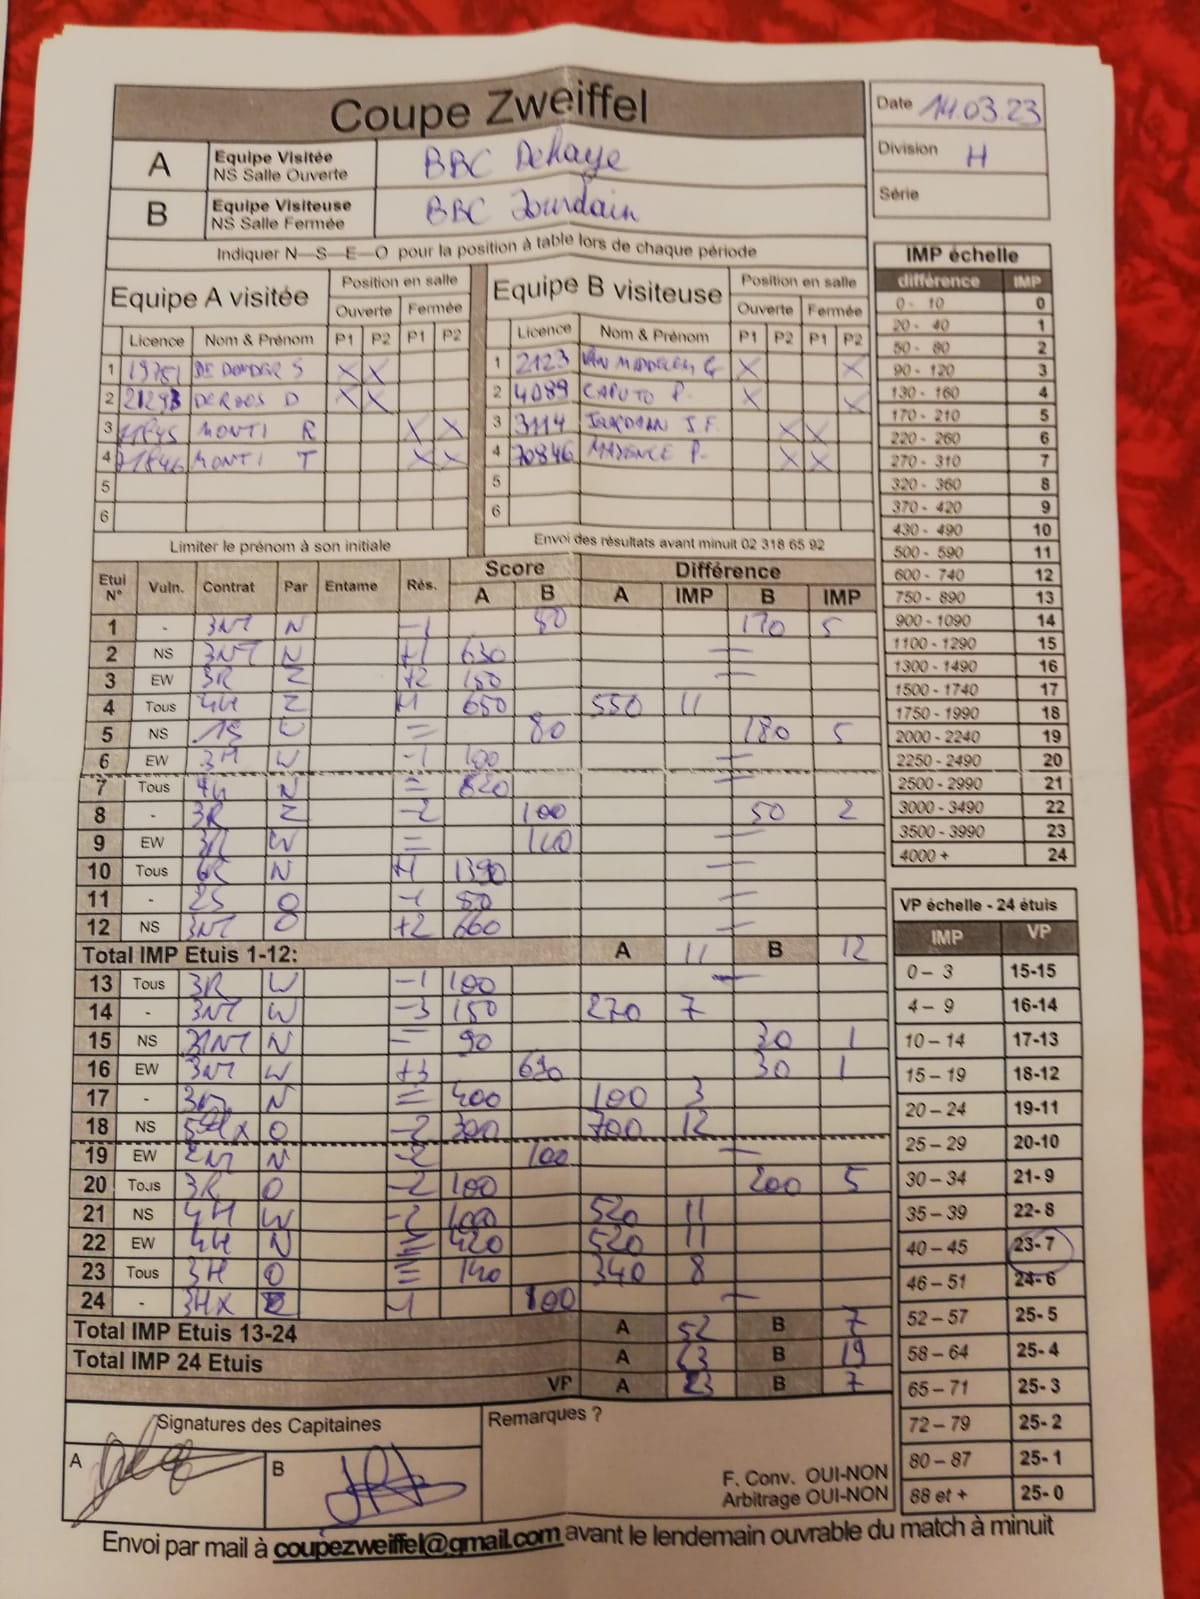 Coupe Zweiffel
Date 14.03.23
Division H
Série
A Equipe Visitée NS Salle Ouverte BBC Dehaye
B Equipe Visiteuse NS Salle Fermée BBC Jourdain
Indiquer N—S—E—O pour la position à table lors de chaque période
Equipe A visitée Position en salle Equipe B visiteuse Position en salle
Ouverte Fermée Ouverte Fermée
Licence Nom & Prénom P1 P2 P1 P2 Licence Nom & Prénom P1 P2 P1 P2
1 DE DONDER S X X 1 2123 G X X
2 D X X 2 4089 CAPUTO P. X X
3 MONTI R X X 3 3114 JOURDAIN J F. X X
4 71846 MONTI T X X 4 70846 MAYENCE P. X X
5 5
6 6
Limiter le prénom à son initiale Envoi des résultats avant minuit 02 318 65 92
IMP échelle
différence IMP
0 - 10 0
20 - 40 1
50 - 80 2
90 - 120 3
130 - 160 4
170 - 210 5
220 - 260 6
270 - 310 7
320 - 360 8
370 - 420 9
430 - 490 10
500 - 590 11
600 - 740 12
750 - 890 13
900 - 1090 14
1100 - 1290 15
1300 - 1490 16
1500 - 1740 17
1750 - 1990 18
2000 - 2240 19
2250 - 2490 20
2500 - 2990 21
3000 - 3490 22
3500 - 3990 23
4000 + 24
Etui N° Vuln. Contrat Par Entame Rés. Score Différence
A B A IMP B IMP
1 - 3NT N -1 50 170 5
2 NS 3NT N +1 630 —
3 EW 3R +2 150 —
4 Tous 4H +1 650 550 11
5 NS 1S = 80 180 5
6 EW 3H W -1 100 —
7 Tous N = 620 —
8 - 3R -2 100 50 2
9 EW 3R W = 110 —
10 Tous 6R N +1 1390 —
11 - 2S O -1 50 —
12 NS 3NT O +2 660 —
Total IMP Etuis 1-12: A 11 B 12
13 Tous 3R W -1 100 —
14 - 3NT W -3 150 270 7
15 NS 1NT N = 90 30 1
16 EW 3NT W +3 690 30 1
17 - 3NT N = 400 100 3
18 NS O -2 300 700 12
19 EW 2NT N -2 100 —
20 Tous 3R O -2 100 200 5
21 NS 4H W -2 100 520 11
22 EW 4H N = 420 520 11
23 Tous 3H O = 140 340 8
24 - 3HX -1 100 —
Total IMP Etuis 13-24 A 52 B 7
Total IMP 24 Etuis A 63 B 19
VP A 23 B 7
VP échelle - 24 étuis
IMP VP
0 – 3 15-15
4 – 9 16-14
10 – 14 17-13
15 – 19 18-12
20 – 24 19-11
25 – 29 20-10
30 – 34 21-9
35 – 39 22-8
40 – 45 23-7
46 – 51 24-6
52 – 57 25-5
58 – 64 25-4
65 – 71 25-3
72 – 79 25-2
80 – 87 25-1
88 et + 25-0
Signatures des Capitaines Remarques ?
A B
F. Conv. OUI-NON
Arbitrage OUI-NON
Envoi par mail à coupezweiffel@gmail.com avant le lendemain ouvrable du match à minuit